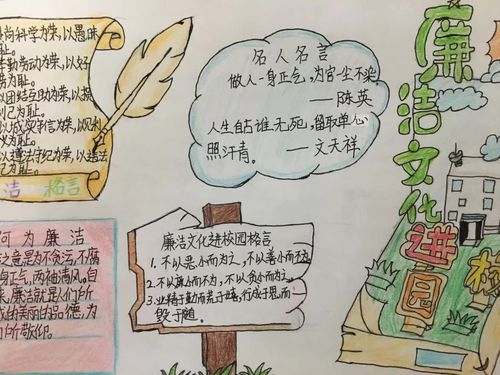 尚科学为荣,以愚昧
耻。
辛勤劳动为荣,以好
劳为耻。
以团结互助为荣,以损
利己为耻。
以诚实守信为荣,以见利
义为耻。
以遵纪守纪为荣,以违法
己为耻。
洁 格言
何为廉洁
之意是为不贪污,不腐
身正气,两袖清风。自
来,廉洁就是人们所
成的美丽的品德,为
们所敬仰。
名人名言
做人一身正气,为官一尘不染
——陈英
人生自古谁无死,留取单心
照汗青。——文天祥
廉洁文化进校园格言
1、不以恶小而为之,不以善小而不
2、不以廉小而不为,不以贪小而为之
3、业精于勤而荒于嬉,行成于思而
毁于随。
廉洁文化进校园